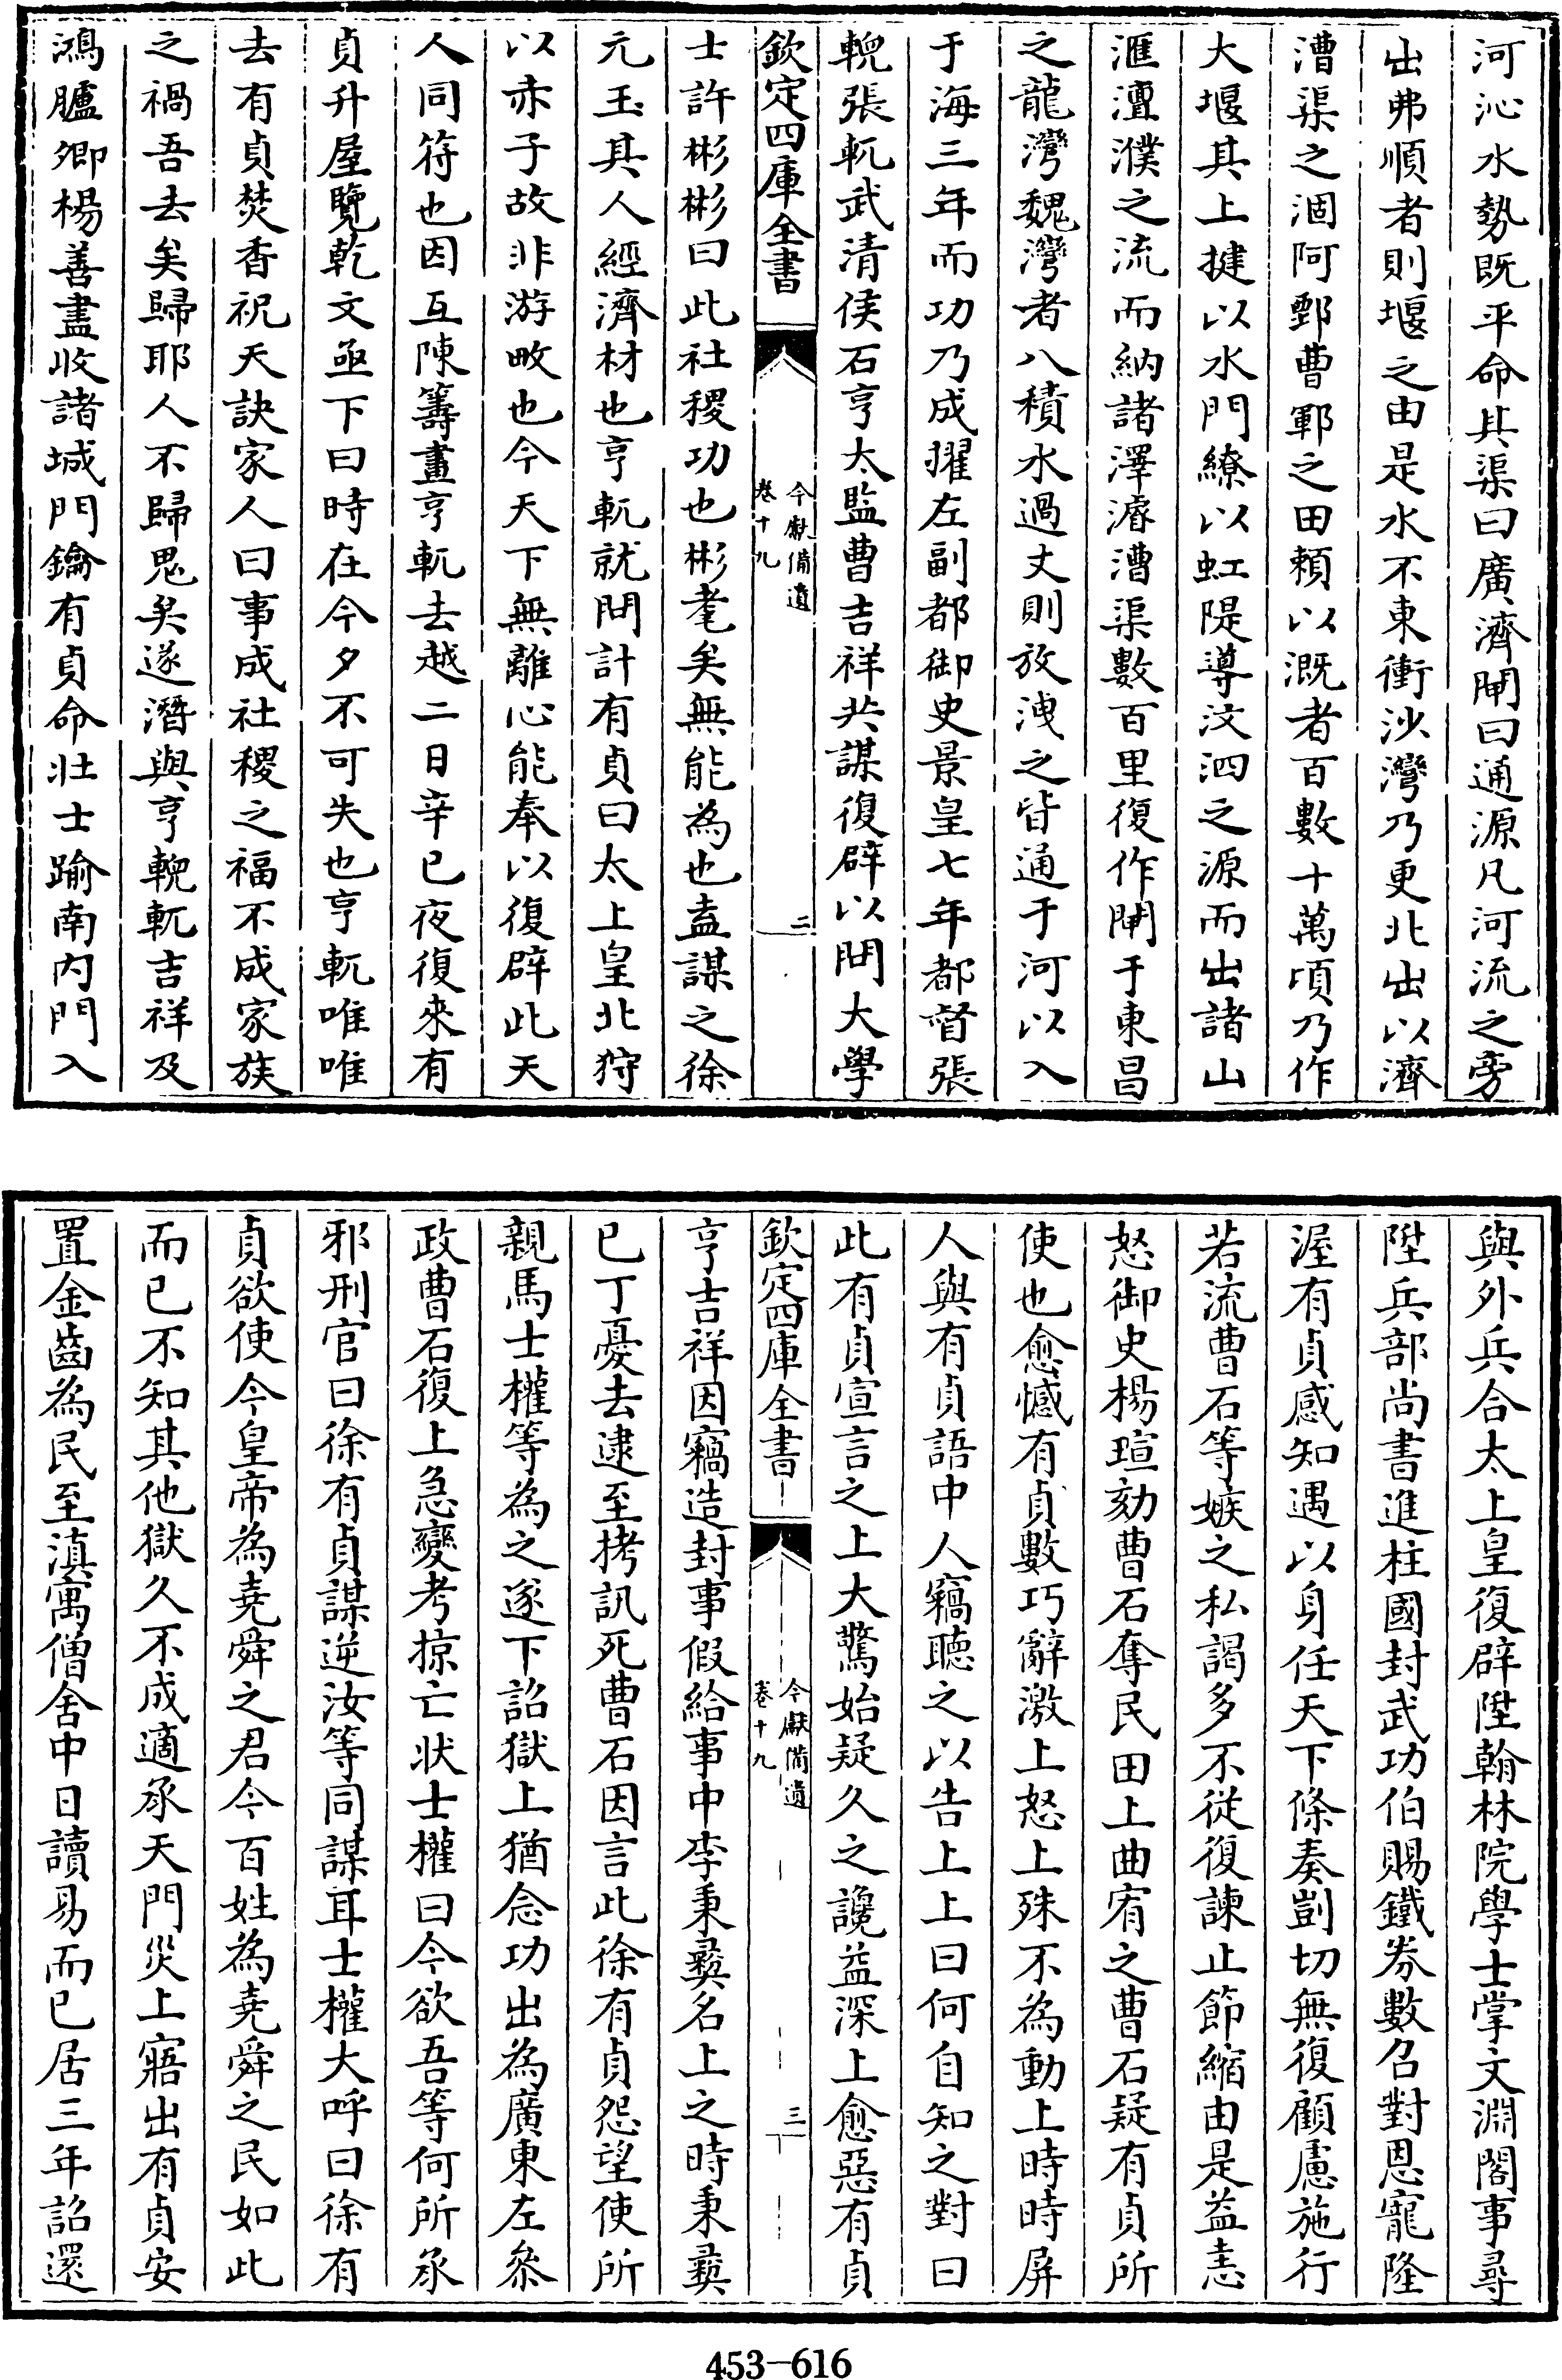 河沁水勢既平命其渠曰廣濟閘曰通源凡河流之旁
出弗順者則堰之由是水不東衝沙灣乃更北出以濟
漕渠之涸阿鄄曹鄆之田賴以溉者百數十萬頃乃作
大堰其上揵以水門繚以虹隄導汶泗之源而出諸山
滙澶濮之流而納諸澤濬漕渠數百里復作閘于東昌
之龍灣魏灣者八積水過丈則放洩之皆通于河以入
于海三年而功乃成擢左副都御史景皇七年都督張
輗張軏武清侯石亨太監曹吉祥共謀復辟以問大學
欽定四庫全書
今獻備遺
卷十九
二
士許彬彬曰此社稷功也彬耄矣無能為也盍謀之徐
元玉其人經濟材也亨軏就問計有貞曰太上皇北狩
以赤子故非游畋也今天下無離心能奉以復辟此天
人同符也因互陳籌畫亨軏去越二日辛巳夜復來有
貞升屋覽乾文亟下曰時在今夕不可失也亨軏唯唯
去有貞焚香祝天訣家人曰事成社稷之福不成家族
之禍吾去矣歸耶人不歸鬼矣遂潛與亨輗軏吉祥及
鴻臚卿楊善盡收諸城門鑰有貞命壯士踰南内門入
與外兵合太上皇復辟陞翰林院學士掌文淵閣事尋
陞兵部尚書進柱國封武功伯賜鐵券數召對恩寵隆
渥有貞感知遇以身任天下條奏剴切無復顧慮施行
若流曹石等嫉之私謁多不從復諫止節縮由是益恚
怒御史楊瑄劾曹石奪民田上曲宥之曹石疑有貞所
使也愈憾有貞數巧辭激上怒上殊不為動上時時屏
人與有貞語中人竊聽之以告上上曰何自知之對曰
此有貞宣言之上大驚始疑久之讒益深上愈惡有貞
欽定四庫全書
今獻備遺
卷十九
三
亨吉祥因竊造封事假給事中李秉彝名上之時秉彝
已丁憂去逮至拷訊死曹石因言此徐有貞怨望使所
親馬士權等為之遂下詔獄上猶念功出為廣東左叅
政曹石復上急變考掠亡状士權曰今欲吾等何所承
邪刑官曰徐有貞謀逆汝等同謀耳士權大呼曰徐有
貞欲使今皇帝為堯舜之君今百姓為堯舜之民如此
而已不知其他獄久不成適承天門災上寤出有貞安
置金齒為民至滇寓僧舍中日讀易而已居三年詔還
453-616